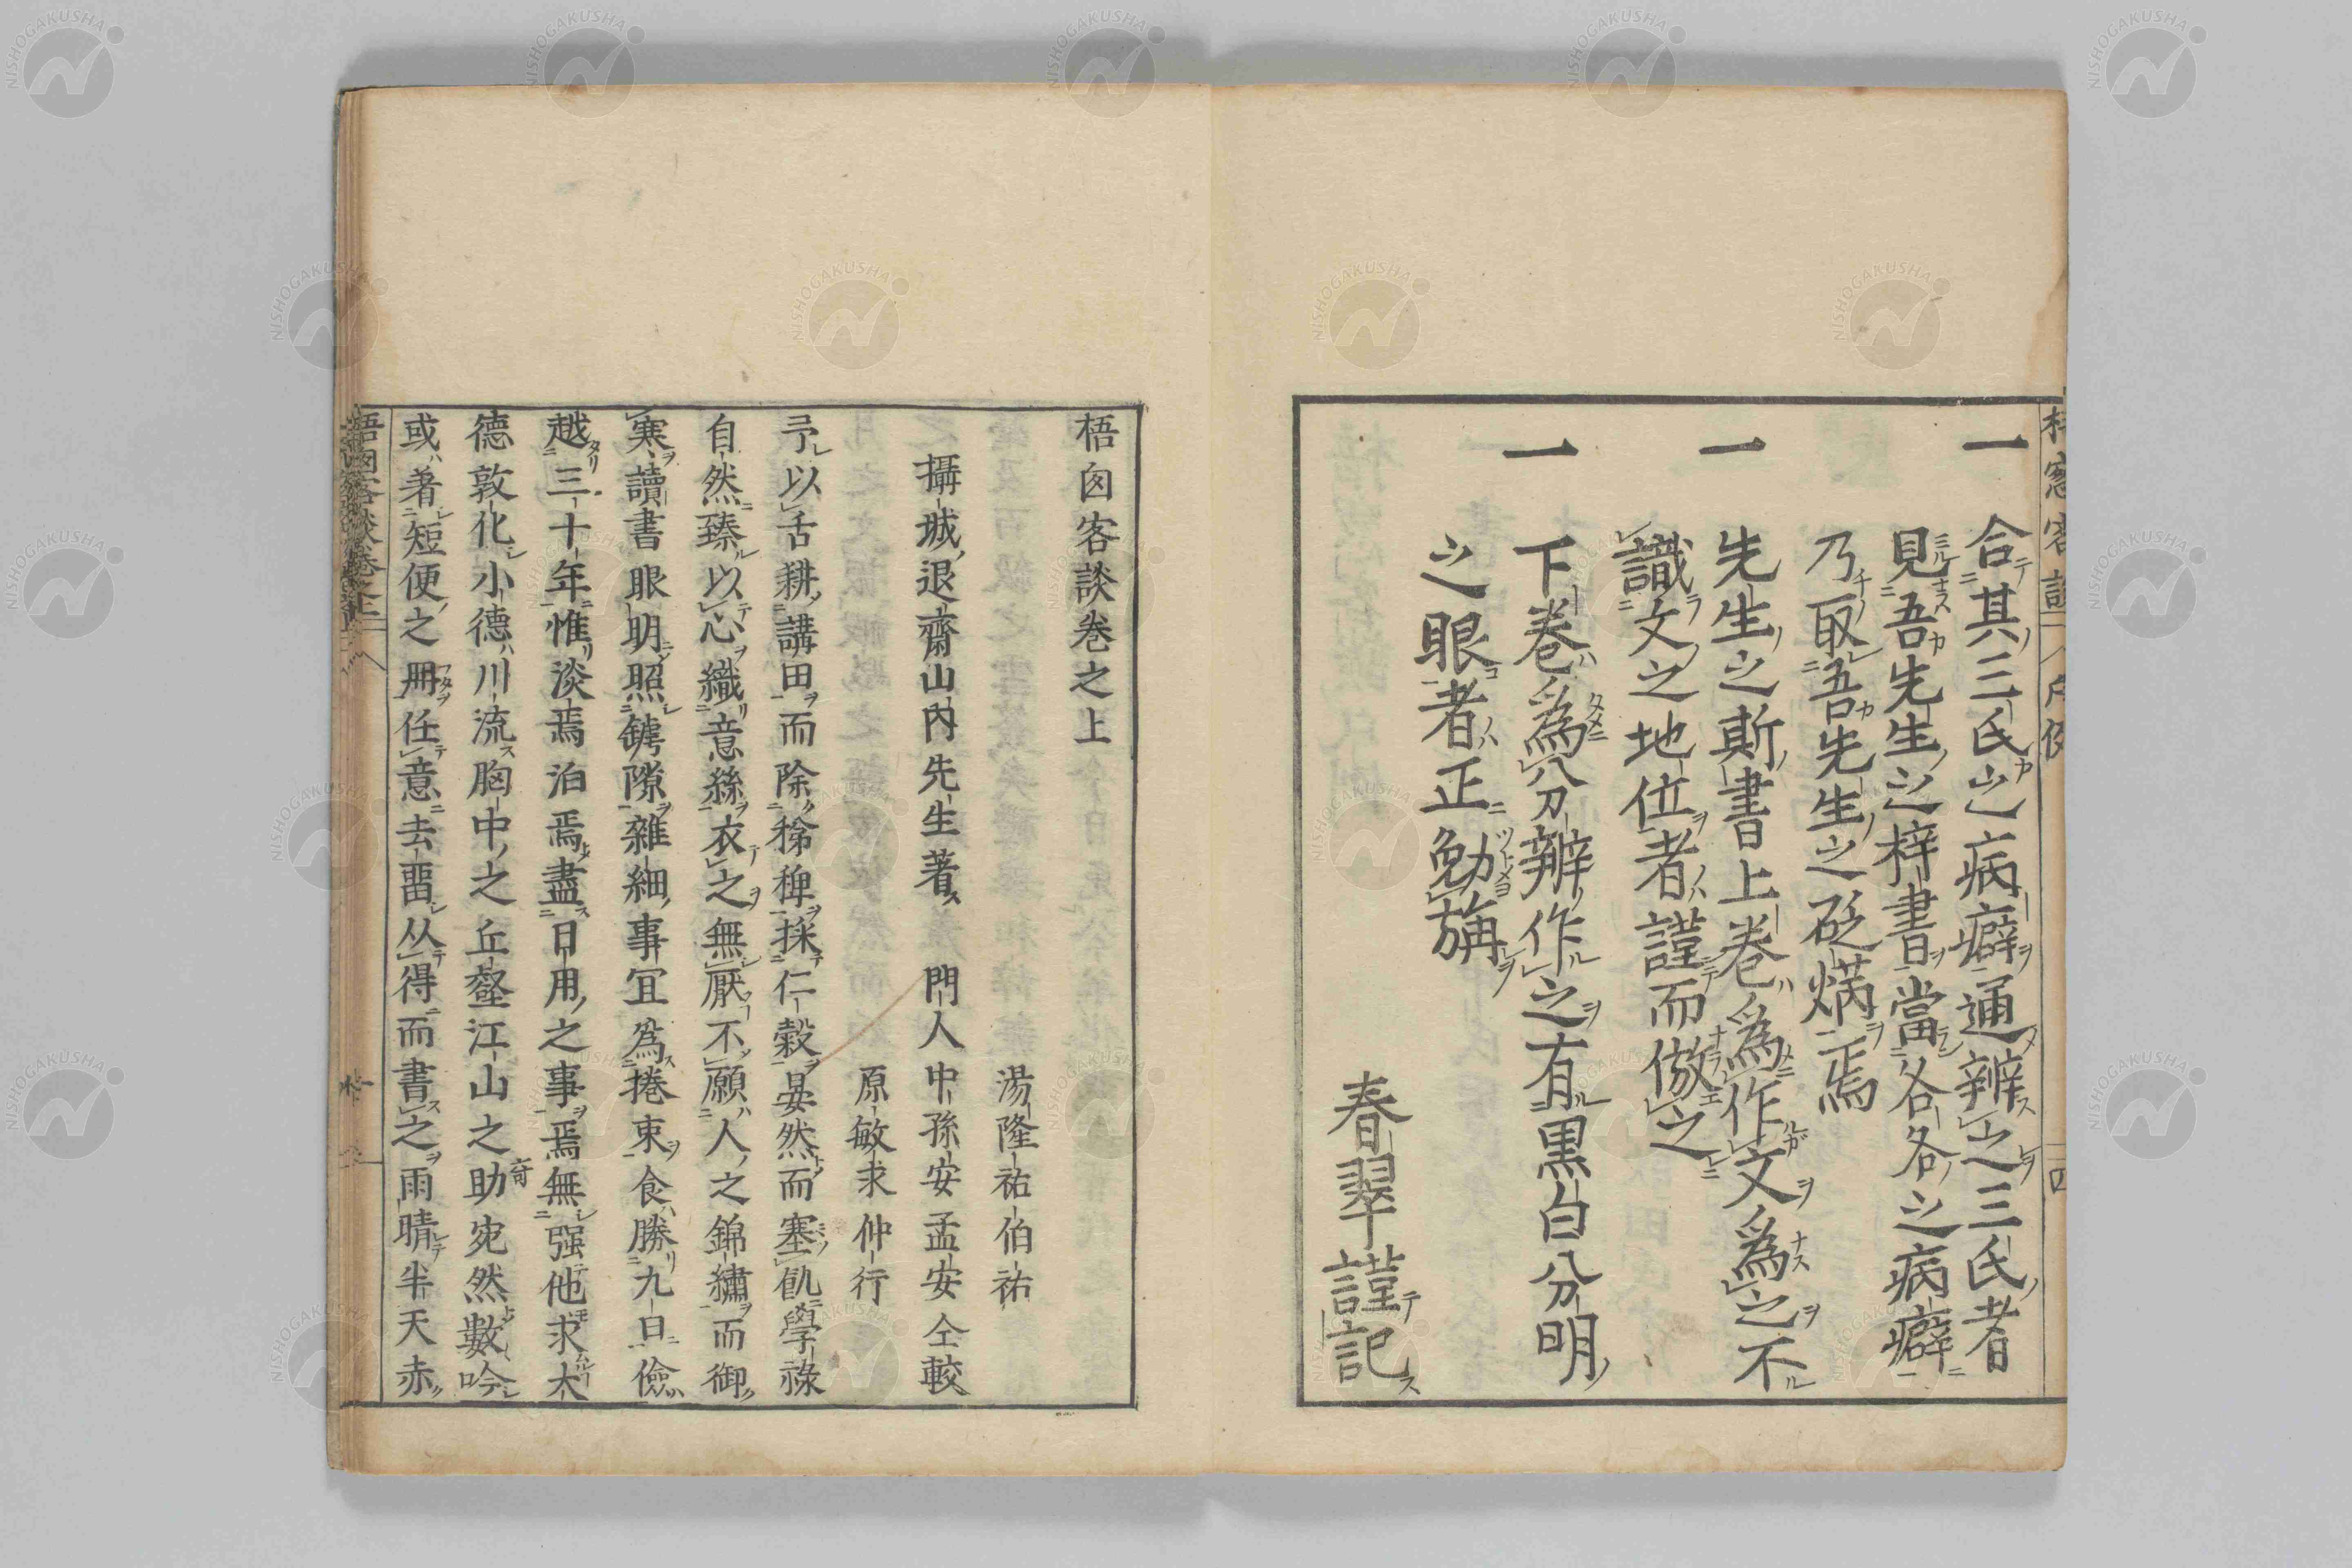 一合其三氏之病癖通辨之三氏者
見吾先生之梓書當各各之病癖
乃取吾先生之砭焫焉
一先生之斯書上卷爲作文爲之不
識文之地位者謹而倣之
一下卷爲分辨作之有黒白分明
之眼者正勉旃
春翠謹記
梧囱客談卷之上
湯隆祐伯祐
攝城退齋山内先生著 門人中孫安孟安仝較
原敏求仲行
予以舌耕講田而除稊稗採仁穀晏然而塞飢學祿
自然臻以心織意絲衣之無厭不願人之錦繡而御
寒讀書眼明照罅隙雜細事冝爲捲束食勝九日儉
越三十年惟淡焉泊焉盡日用之事焉無强他求大
德敦化小德川流胸中之丘壑江山之助宛然數吟
或著短便之冊任意去畱从得而書之雨晴半天赤